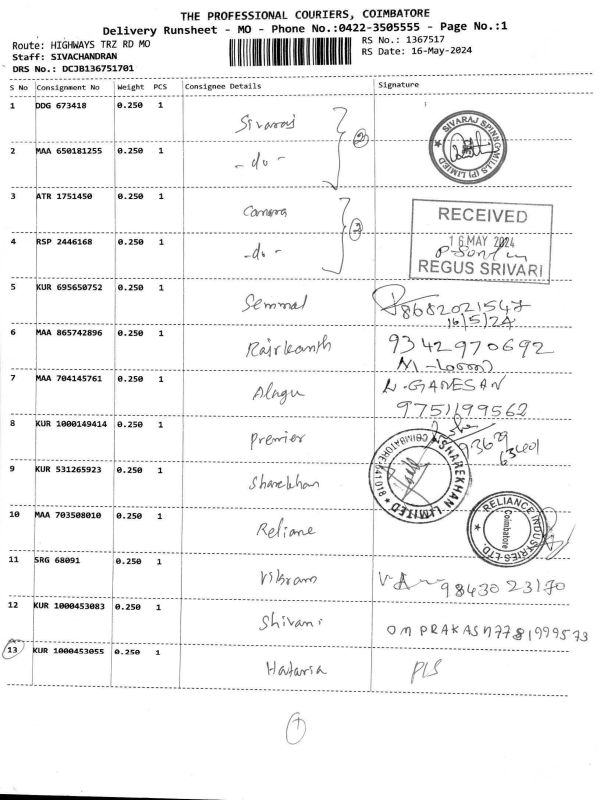 THE PROFESSIONAL COURIERS, COIMBATORE
Delivery Runsheet - MO - Phone No.:0422-3505555 - Page No.:1
Route: HIGHWAYS TRZ RD MO
RS No.: 1367517
Staff: SIVACHANDRAN
RS Date: 16-May-2024
DRS No.: DCJB136751701
S No Consignment No Weight PCS Consignee Details Signature
1 DDG 673418 0.250 1 Sivaraj
2
SIVARAJ SPINNING MILLS (P) LIMITED
2 MAA 650181255 0.250 1 - do -
3 ATR 1751450 0.250 1 Canara
2
RECEIVED
16 MAY 2024
REGUS SRIVARI
4 RSP 2446168 0.250 1 - do -
5 KUR 695650752 0.250 1 Semmal 8682021547
16/5/24
6 MAA 865742896 0.250 1 Rajrkanth 9342970692
7 MAA 704145761 0.250 1 Alagu N. GANESAN
9751199562
8 KUR 1000149414 0.250 1 Premier 93629
63401
9 KUR 531265923 0.250 1 Sharekhan
SHAREKHAN LIMITED COIMBATORE-641018
10 MAA 703508010 0.250 1 Reliane
RELIANCE INDUSTRIES LTD.
Coimbatore
11 SRG 68091 0.250 1 Vikram 98430 23170
12 KUR 1000453083 0.250 1 Shivani OM PRAKASH 7781999573
13 KUR 1000453055 0.250 1 Hataria PLS